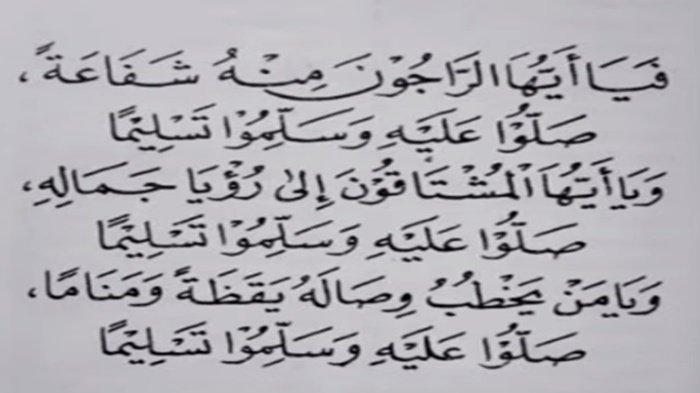 فَيَا أَيُّهَا الرَّاجُوْنَ مِنْهُ شَفَاعَةً،
صَلُّوْا عَلَيْهِ وَسَلِّمُوْا تَسْلِيْمًا
وَيَا أَيُّهَا الْمُشْتَاقُوْنَ إِلىٰ رُؤْيَا جَمَالِهِ،
صَلُّوْا عَلَيْهِ وَسَلِّمُوْا تَسْلِيْمًا
وَيَا مَنْ يَخْطُبُ وِصَالَهُ يَقَظَةً وَمَنَامًا،
صَلُّوْا عَلَيْهِ وَسَلِّمُوْا تَسْلِيْمًا